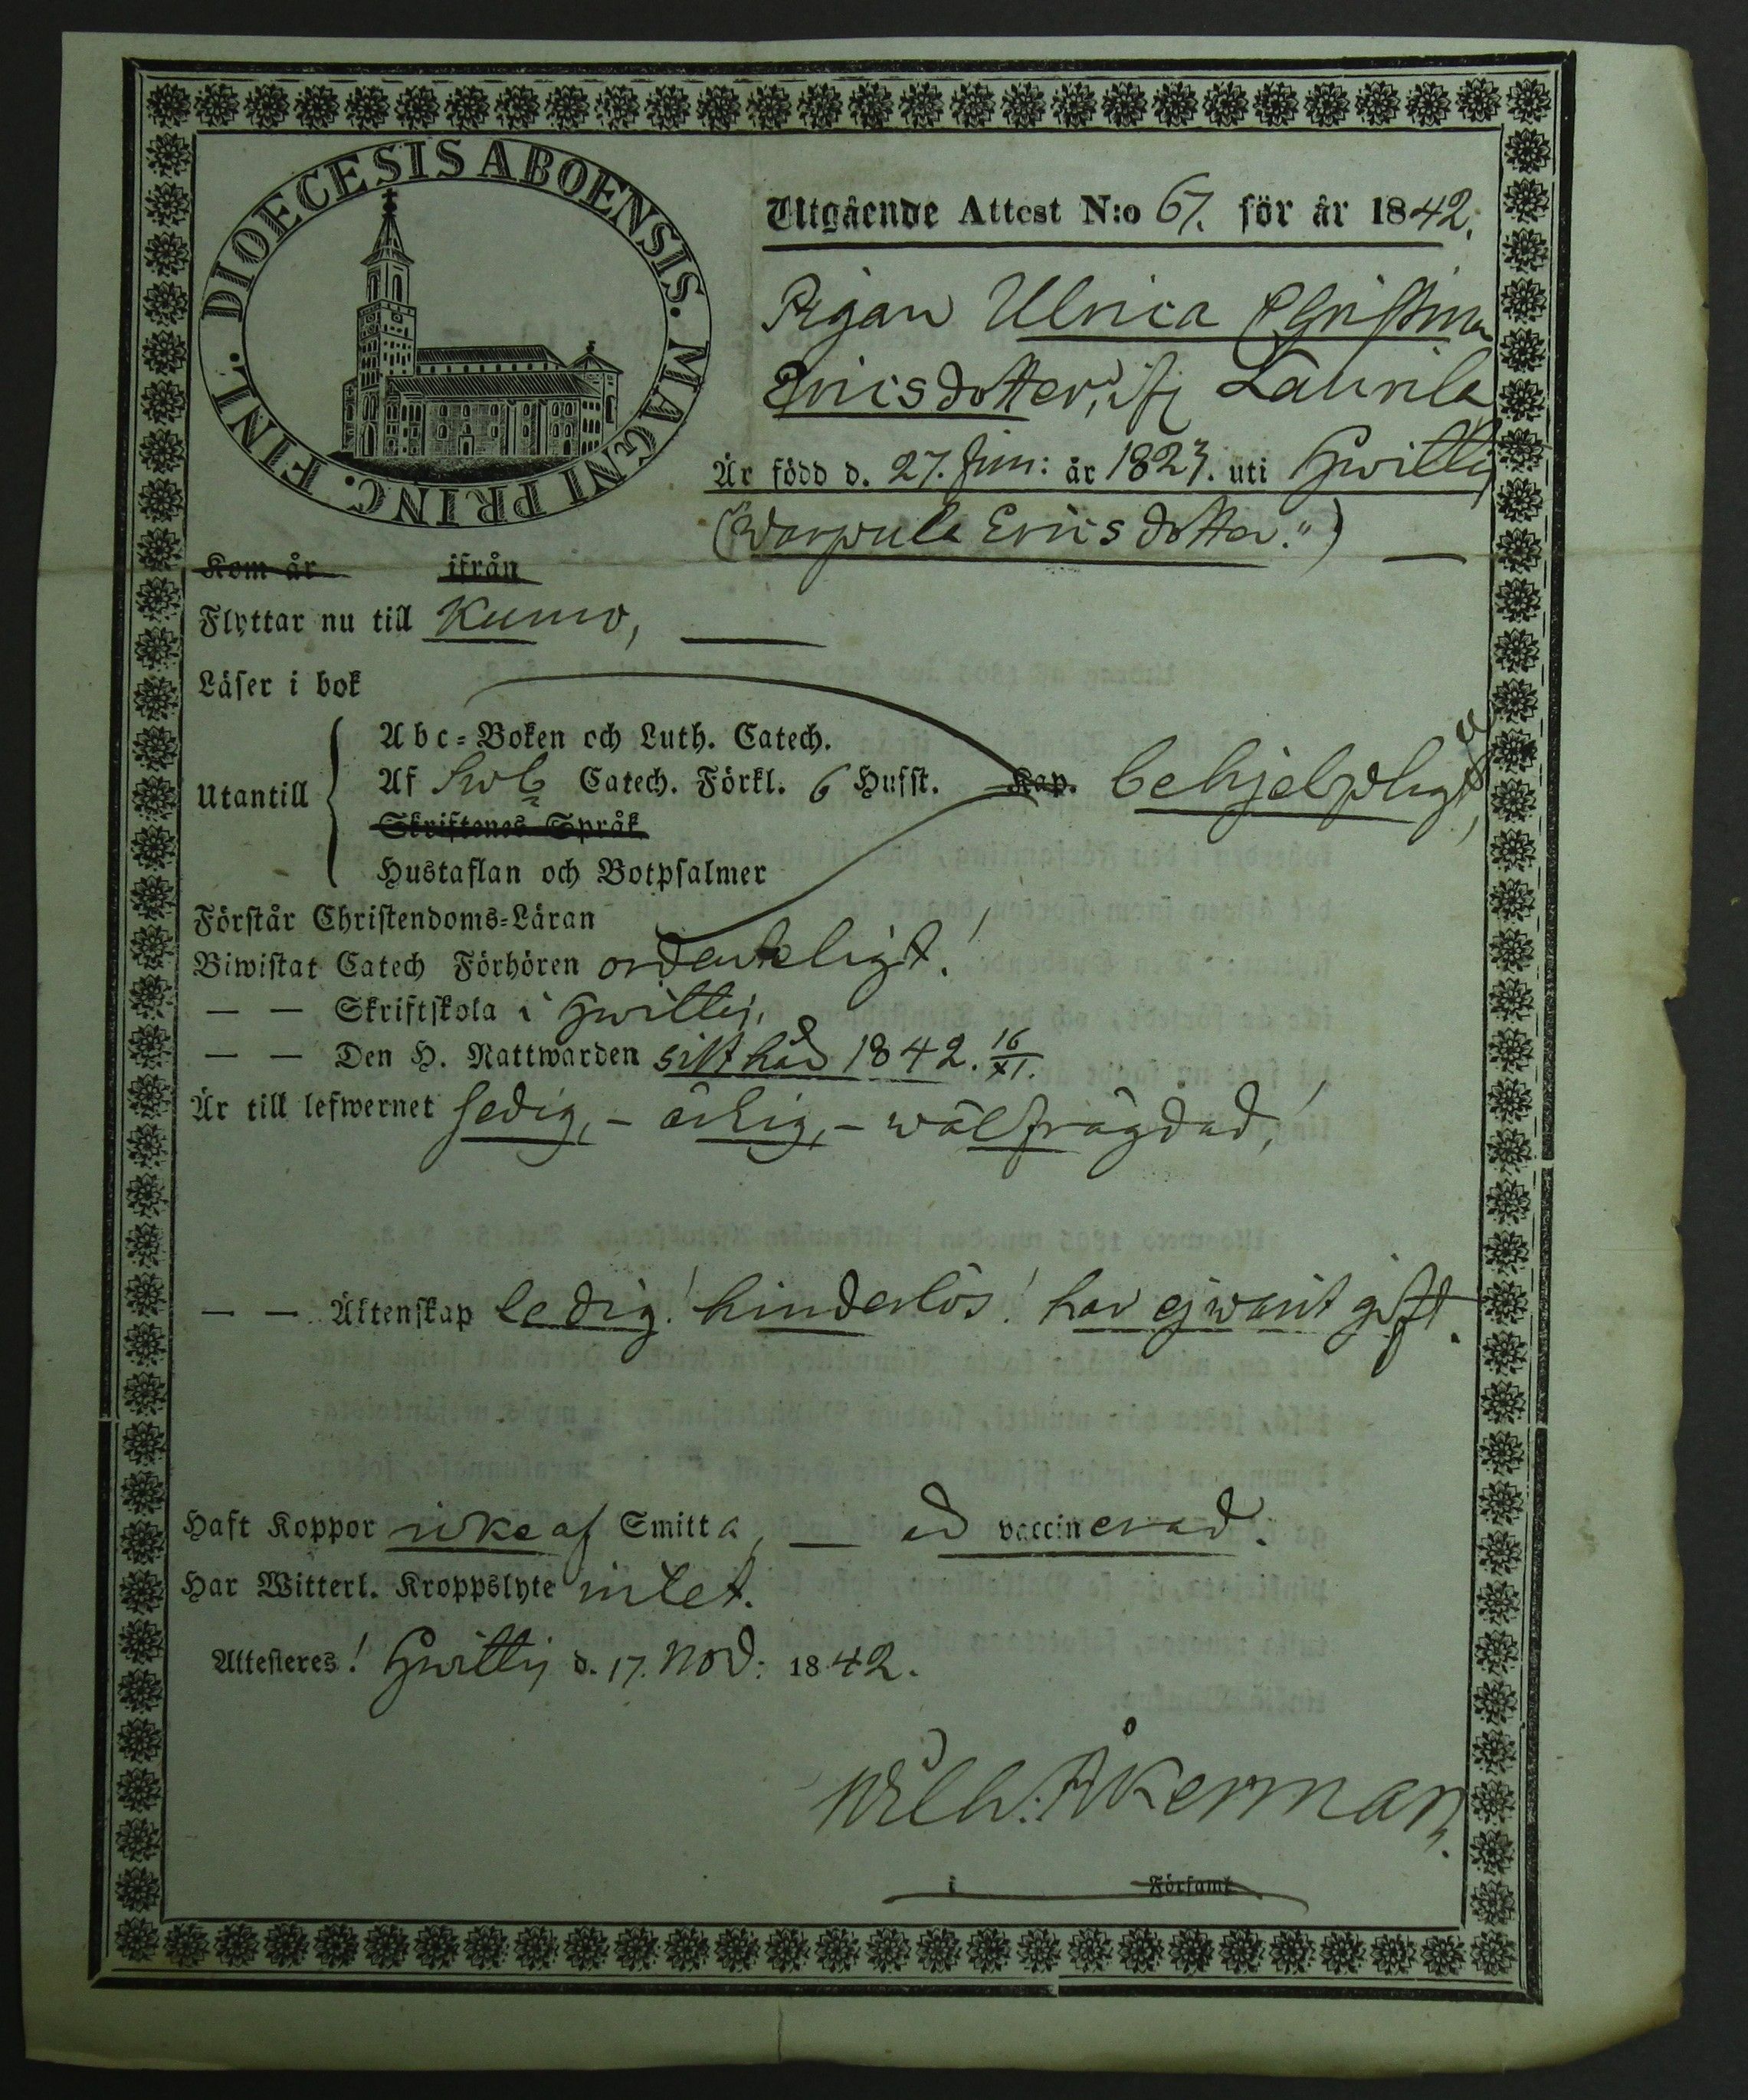 DIOECESIS ABOENSIS. MAGNI PRINC. FINL.
Utgående Attest N:o 67. för år 1842.
Pigan Ulrica Christina
Ericsdotter, ifr Laurila
Är född d. 27. Jun: år 1823. uti Hwittis
("Warpula Ericsdotter.")
Kom år ifrån
Flyttar nu till Kumo,
Läser i bok
Abc-Boken och Luth. Catech.
Utantill Af Swb Catech. Förkl. 6 Hufst. Kap. behjelpligt,
Skriftenes Språk
Hustaflan och Botpsalmer
Förstår Christendoms-Läran
Biwistat Catech Förhören ordenteligt!
— — Skriftskola i Hwittis,
— — Den H. Nattwarden sist här 1842. 16/XI.
Är till lefwernet sedig, - ärlig, - wälfrägdad!
— — Äktenskap ledig! hinderlös! har ej warit gift.
Haft Koppor icke af Smitta, — vaccinerad.
Har Witterl. Kroppslyte intet.
Attesteres! Hwittis d. 17. Nov: 1842.
Wilh: Åkerman.
i Församl